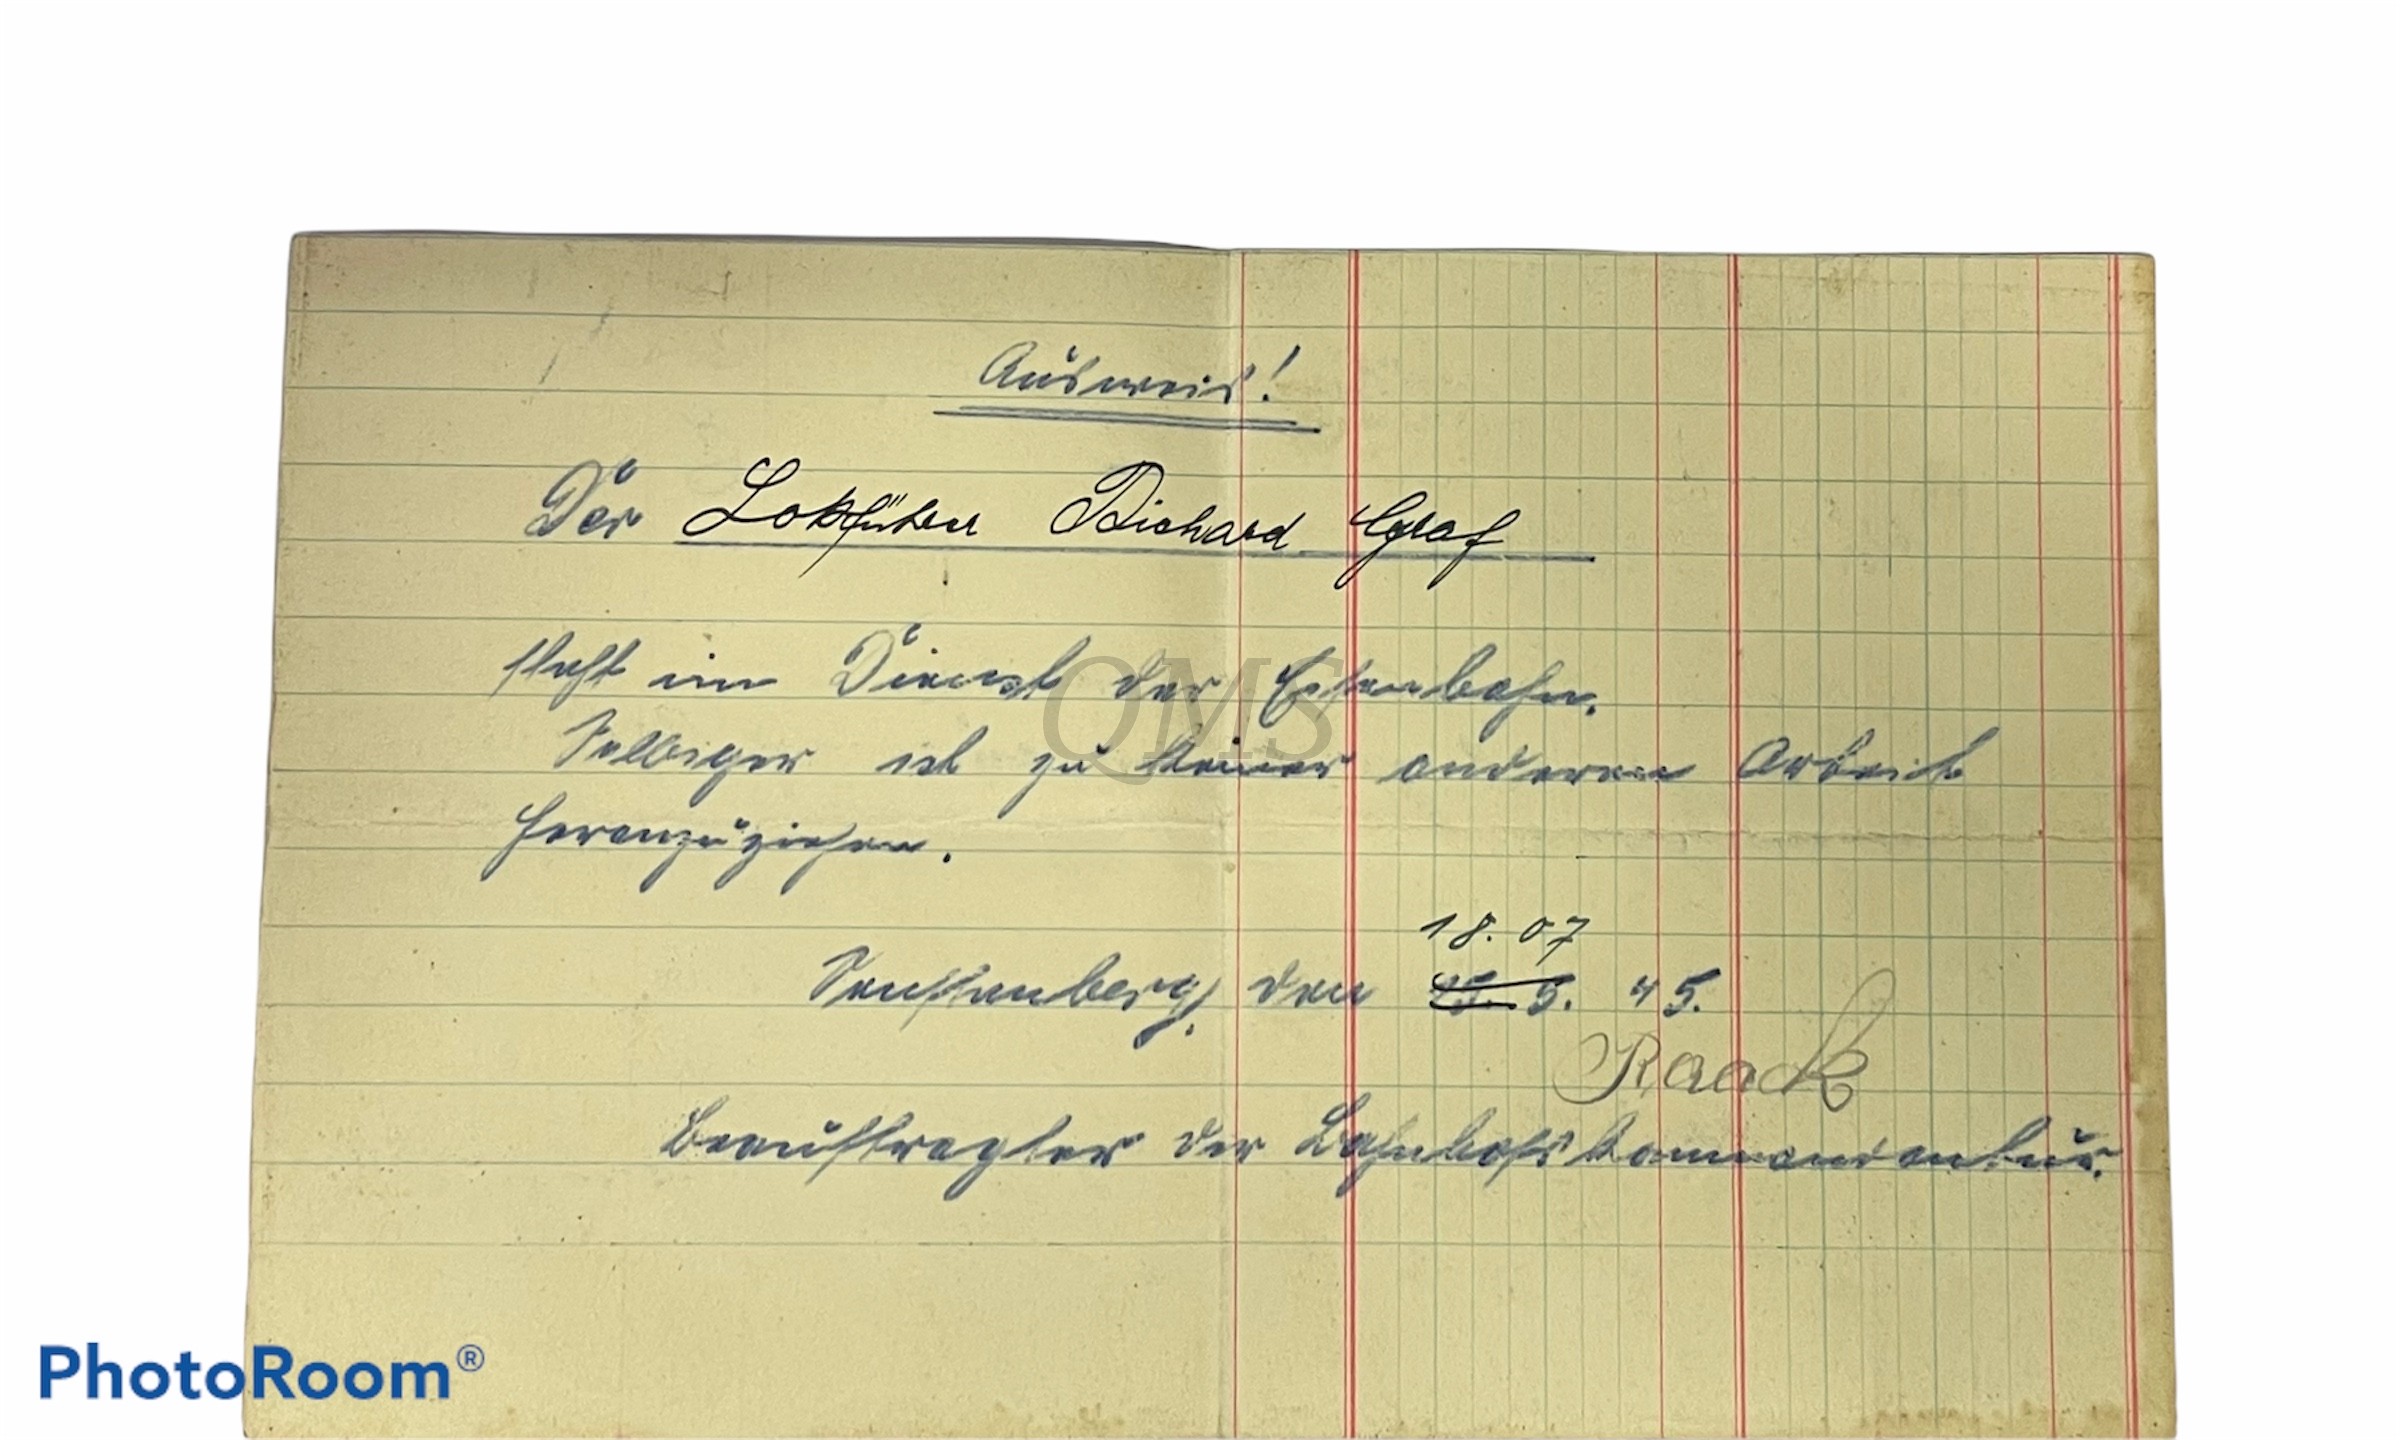 Ausweis!
Der Lokführer Richard Graf
steht im Dienst der Eisenbahn.
Selbiger ist zu keiner anderen Arbeit
heranzuziehen.
18. 07
Senftenberg, den 25. 5. 45.
Raack
Beauftragter der Bahnhofskommandantur.
QMS
PhotoRoom®